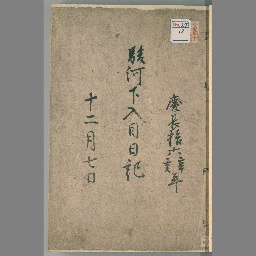 慶長拾六辛亥年
駿河下入目日記
十二月七日